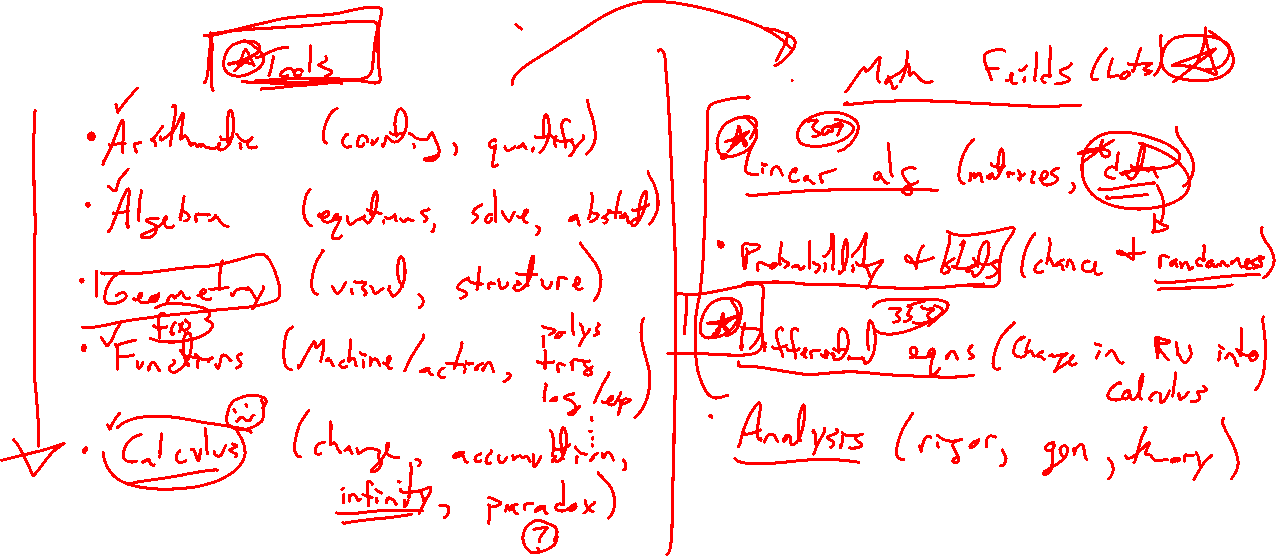 Tools
• Arithmetic (counting, quantify)
• Algebra (equations, solve, abstact)
• Geometry (visual, structure)
f(x)
• Functions (Machine/action, polys
trig
log/exp)
• Calculus (change, accumultion,
infinity, paradox)
?
Math Feilds (Lots)
Linear alg (matrices, data)
307
• Probability + stats (chance + randomness)
• Differential eqns (Change in RV into
calculus)
• Analysis (rigor, gen, theory)